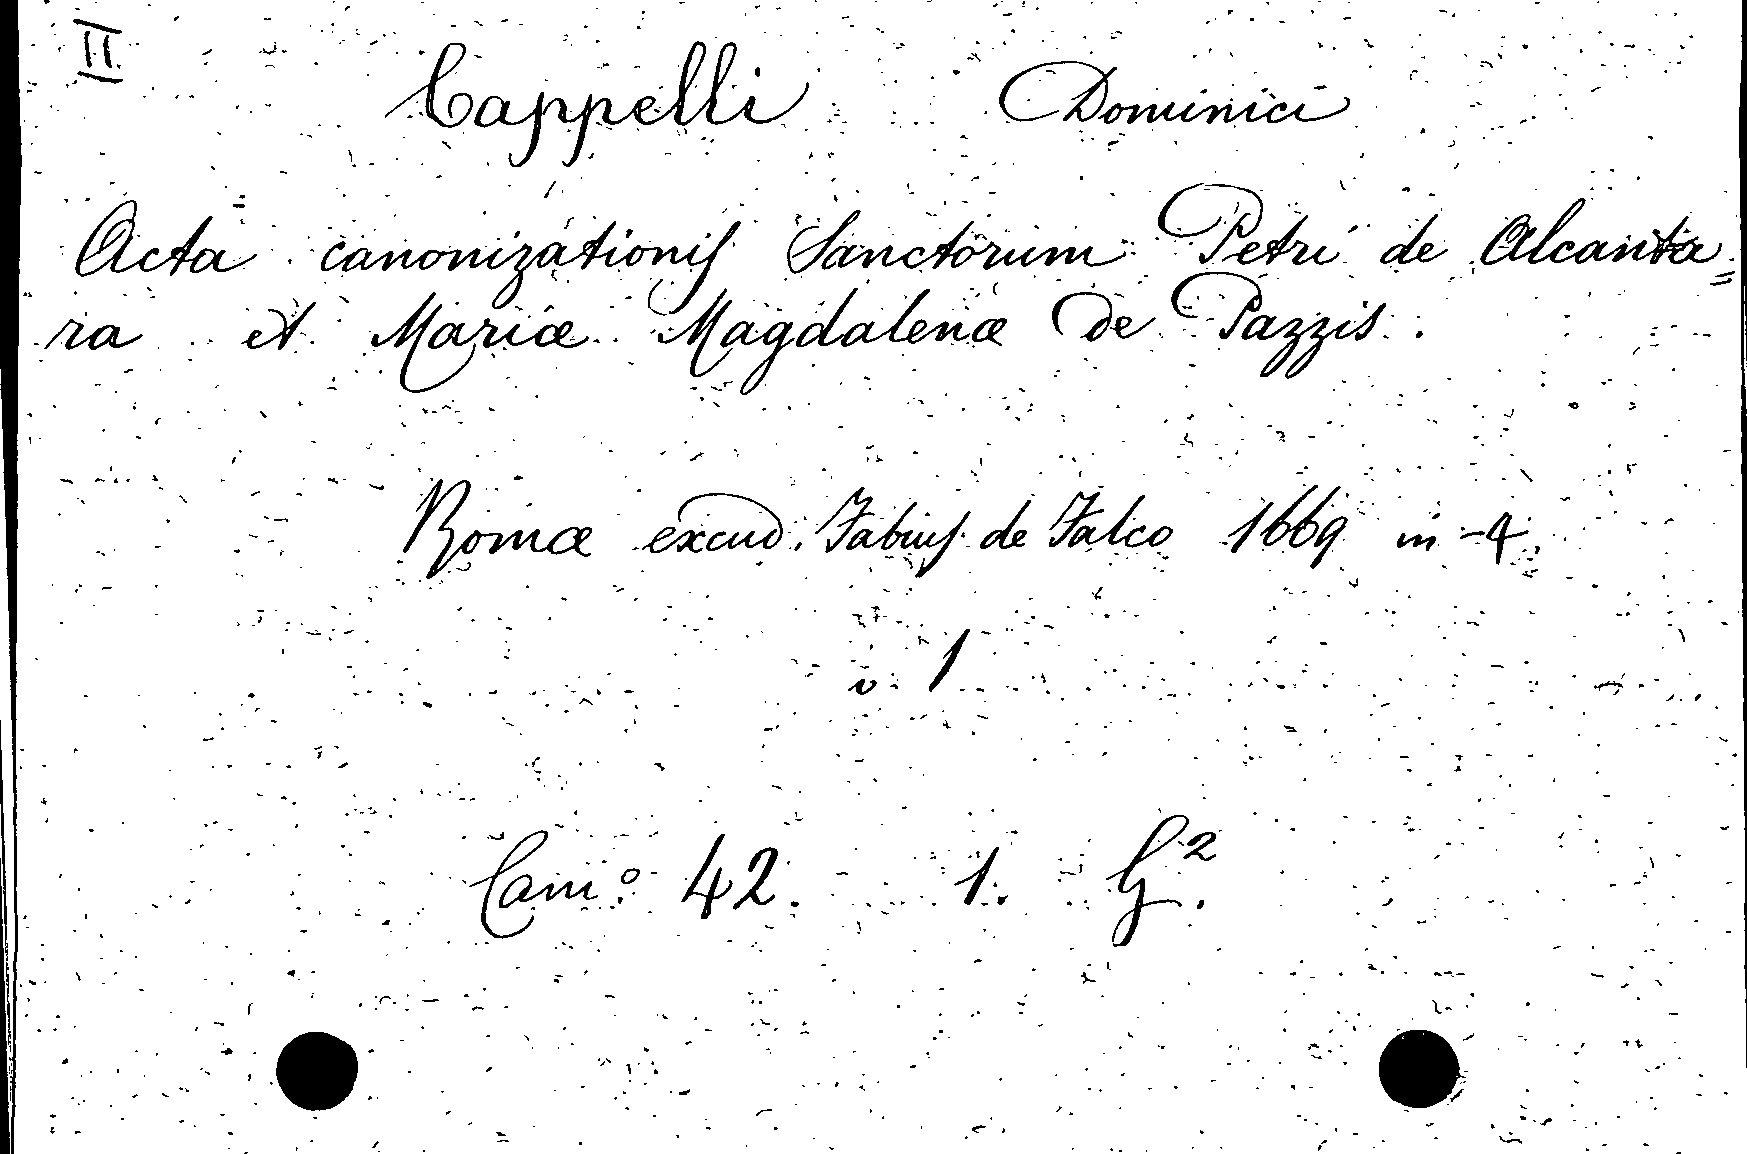 II
Cappelli Dominici
Acta canonizationis Sanctorum Petri de Alcanta=
ra et Mariæ Magdalenæ de Pazzis.
Romæ excud. Fabius de Falco 1669 in-4
v. 1
Cam.º 42. 1. G².